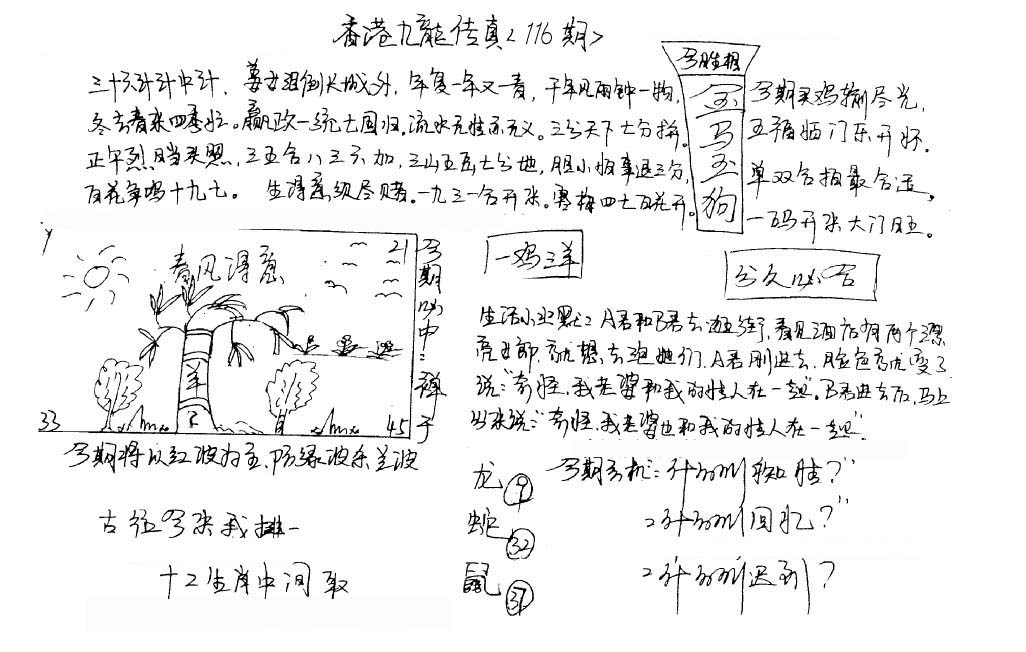 香港九龍传真<116期>
三十六计计中计，姜女泪倒长城外，年复一年又一春，千年见两钟一物，
冬去春来四季忙。嬴政一统七国归。流水无情亦无义。三分天下七分拚，
正午烈日当头照，三五合八三六加，三山五岳七分地，胆小怕事退三分，
百花争鸣十九七。 生得意须尽赌。一九三一合开来。寒梅四七百花开。
今期买鸡输尽光，
五福临门乐开怀。
单双合拍最合适，
一码开来大门旺。
马
狗
21
春风得意
今期必中：
禅子
羊
33
45
今期将以红波为主，防绿波杀兰波
古往今来我排一
十二生肖中间取
一鸡三羊
分久必合
生活小幽默：A君和B君去逛街，看见酒店有两个漂
亮女郎，就想去泡她们，A君刚进去，脸色就变了
说："奇怪，我老婆和我的情人在一起"。B君进去后，马上
出来说："奇怪，我老婆也和我的情人在一起"。
龙 9
蛇 32
鼠 37
今期玄机：什么叫
什么叫回忆？"
什么叫迟到？